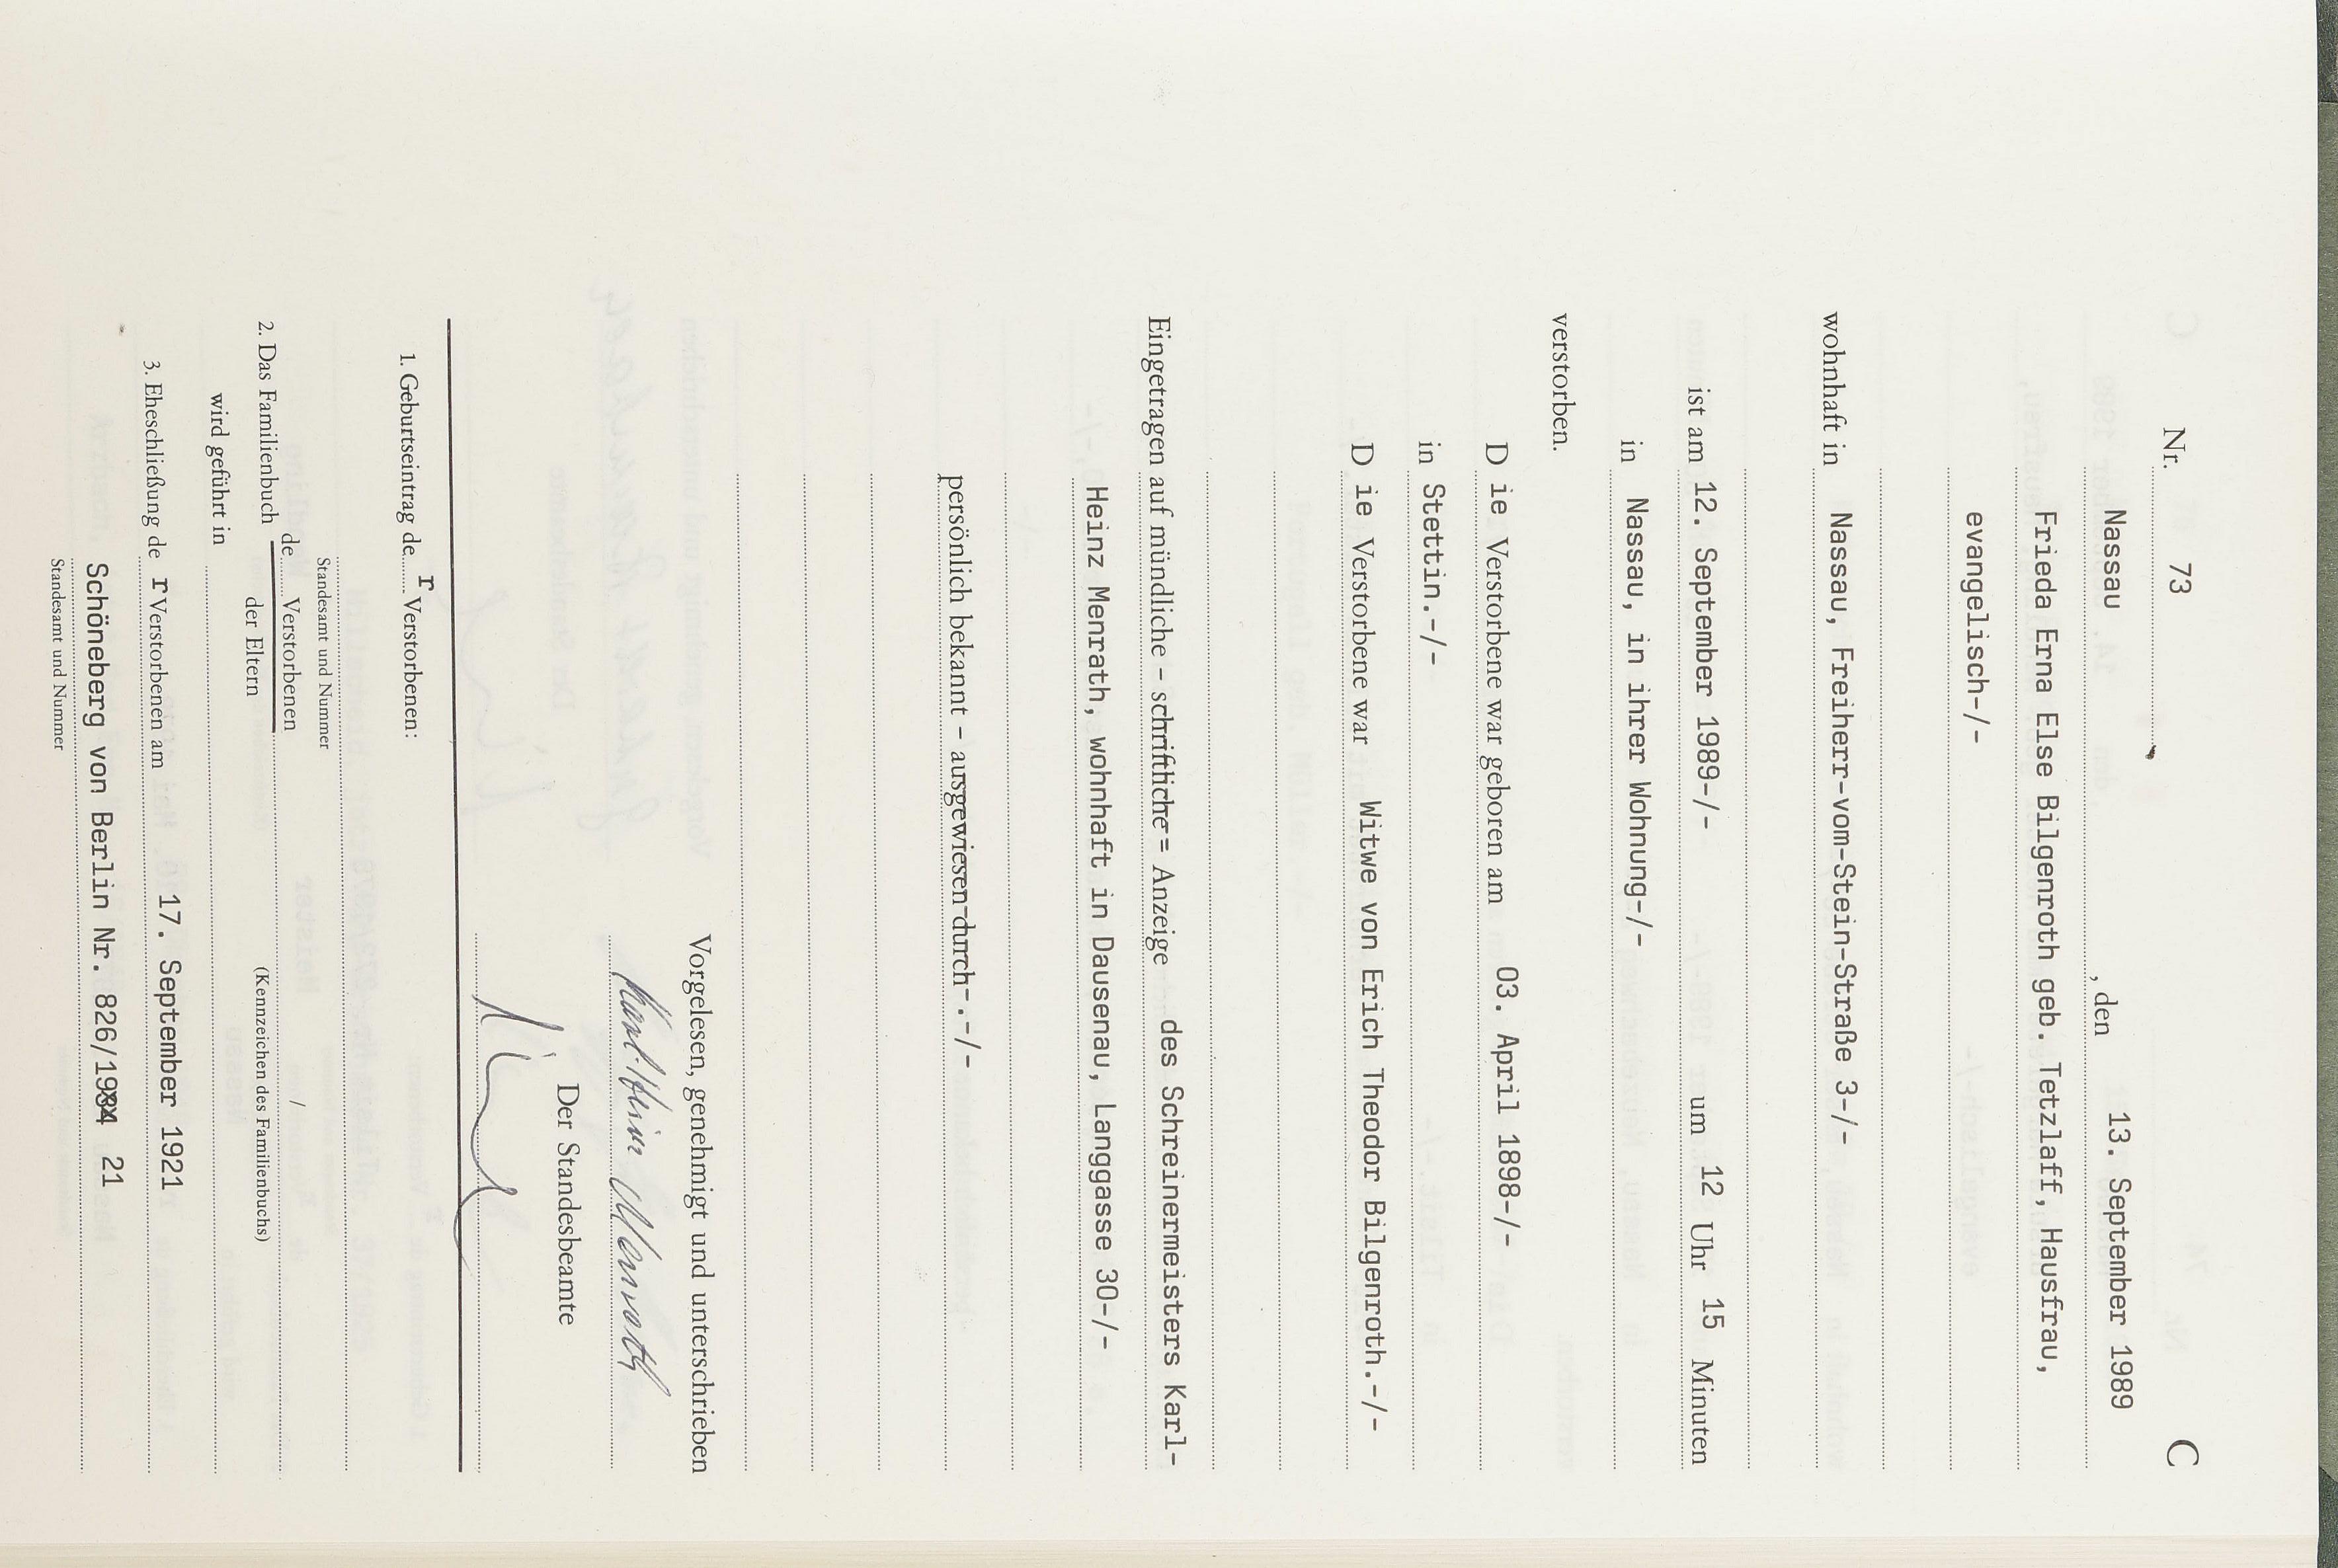 Nr. 73 C
Nassau, den 13. September 1989
Frieda Erna Else Bilgenroth geb. Tetzlaff, Hausfrau,
evangelisch-/-
wohnhaft in Nassau, Freiherr-vom-Stein-Straße 3-/-
ist am 12. September 1989-/- um 12 Uhr 15 Minuten
in Nassau, in ihrer Wohnung-/-
verstorben.
D ie Verstorbene war geboren am 03. April 1898-/-
in Stettin.-/-
D ie Verstorbene war Witwe von Erich Theodor Bilgenroth.-/-
Eingetragen auf mündliche – schriftliche = Anzeige des Schreinermeisters Karl-
Heinz Menrath, wohnhaft in Dausenau, Langgasse 30-/-
persönlich bekannt – ausgewiesen durch-.-/-
Vorgelesen, genehmigt und unterschrieben
Karl-Heinz Menrath
Der Standesbeamte
1. Geburtseintrag de r Verstorbenen:
Standesamt und Nummer
2. Das Familienbuch de Verstorbenen /
der Eltern (Kennzeichen des Familienbuchs)
wird geführt in
3. Eheschließung de r Verstorbenen am 17. September 1921
Schöneberg von Berlin Nr. 826/1984 21
Standesamt und Nummer